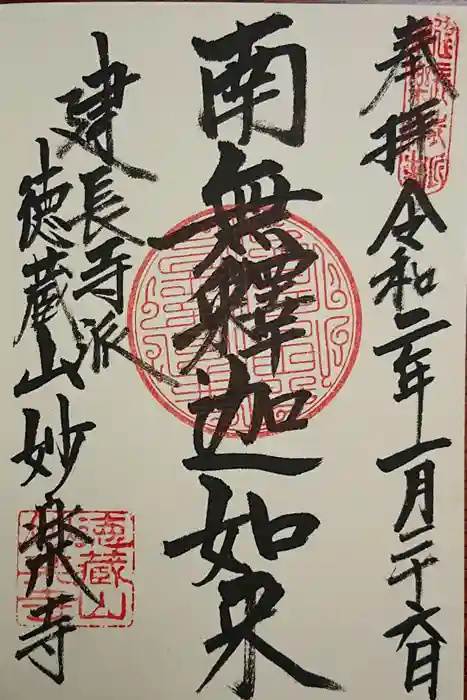 奉拝
令和二年一月二十六日
南無釋迦如来
建長寺派
徳蔵山妙楽寺
徳蔵山